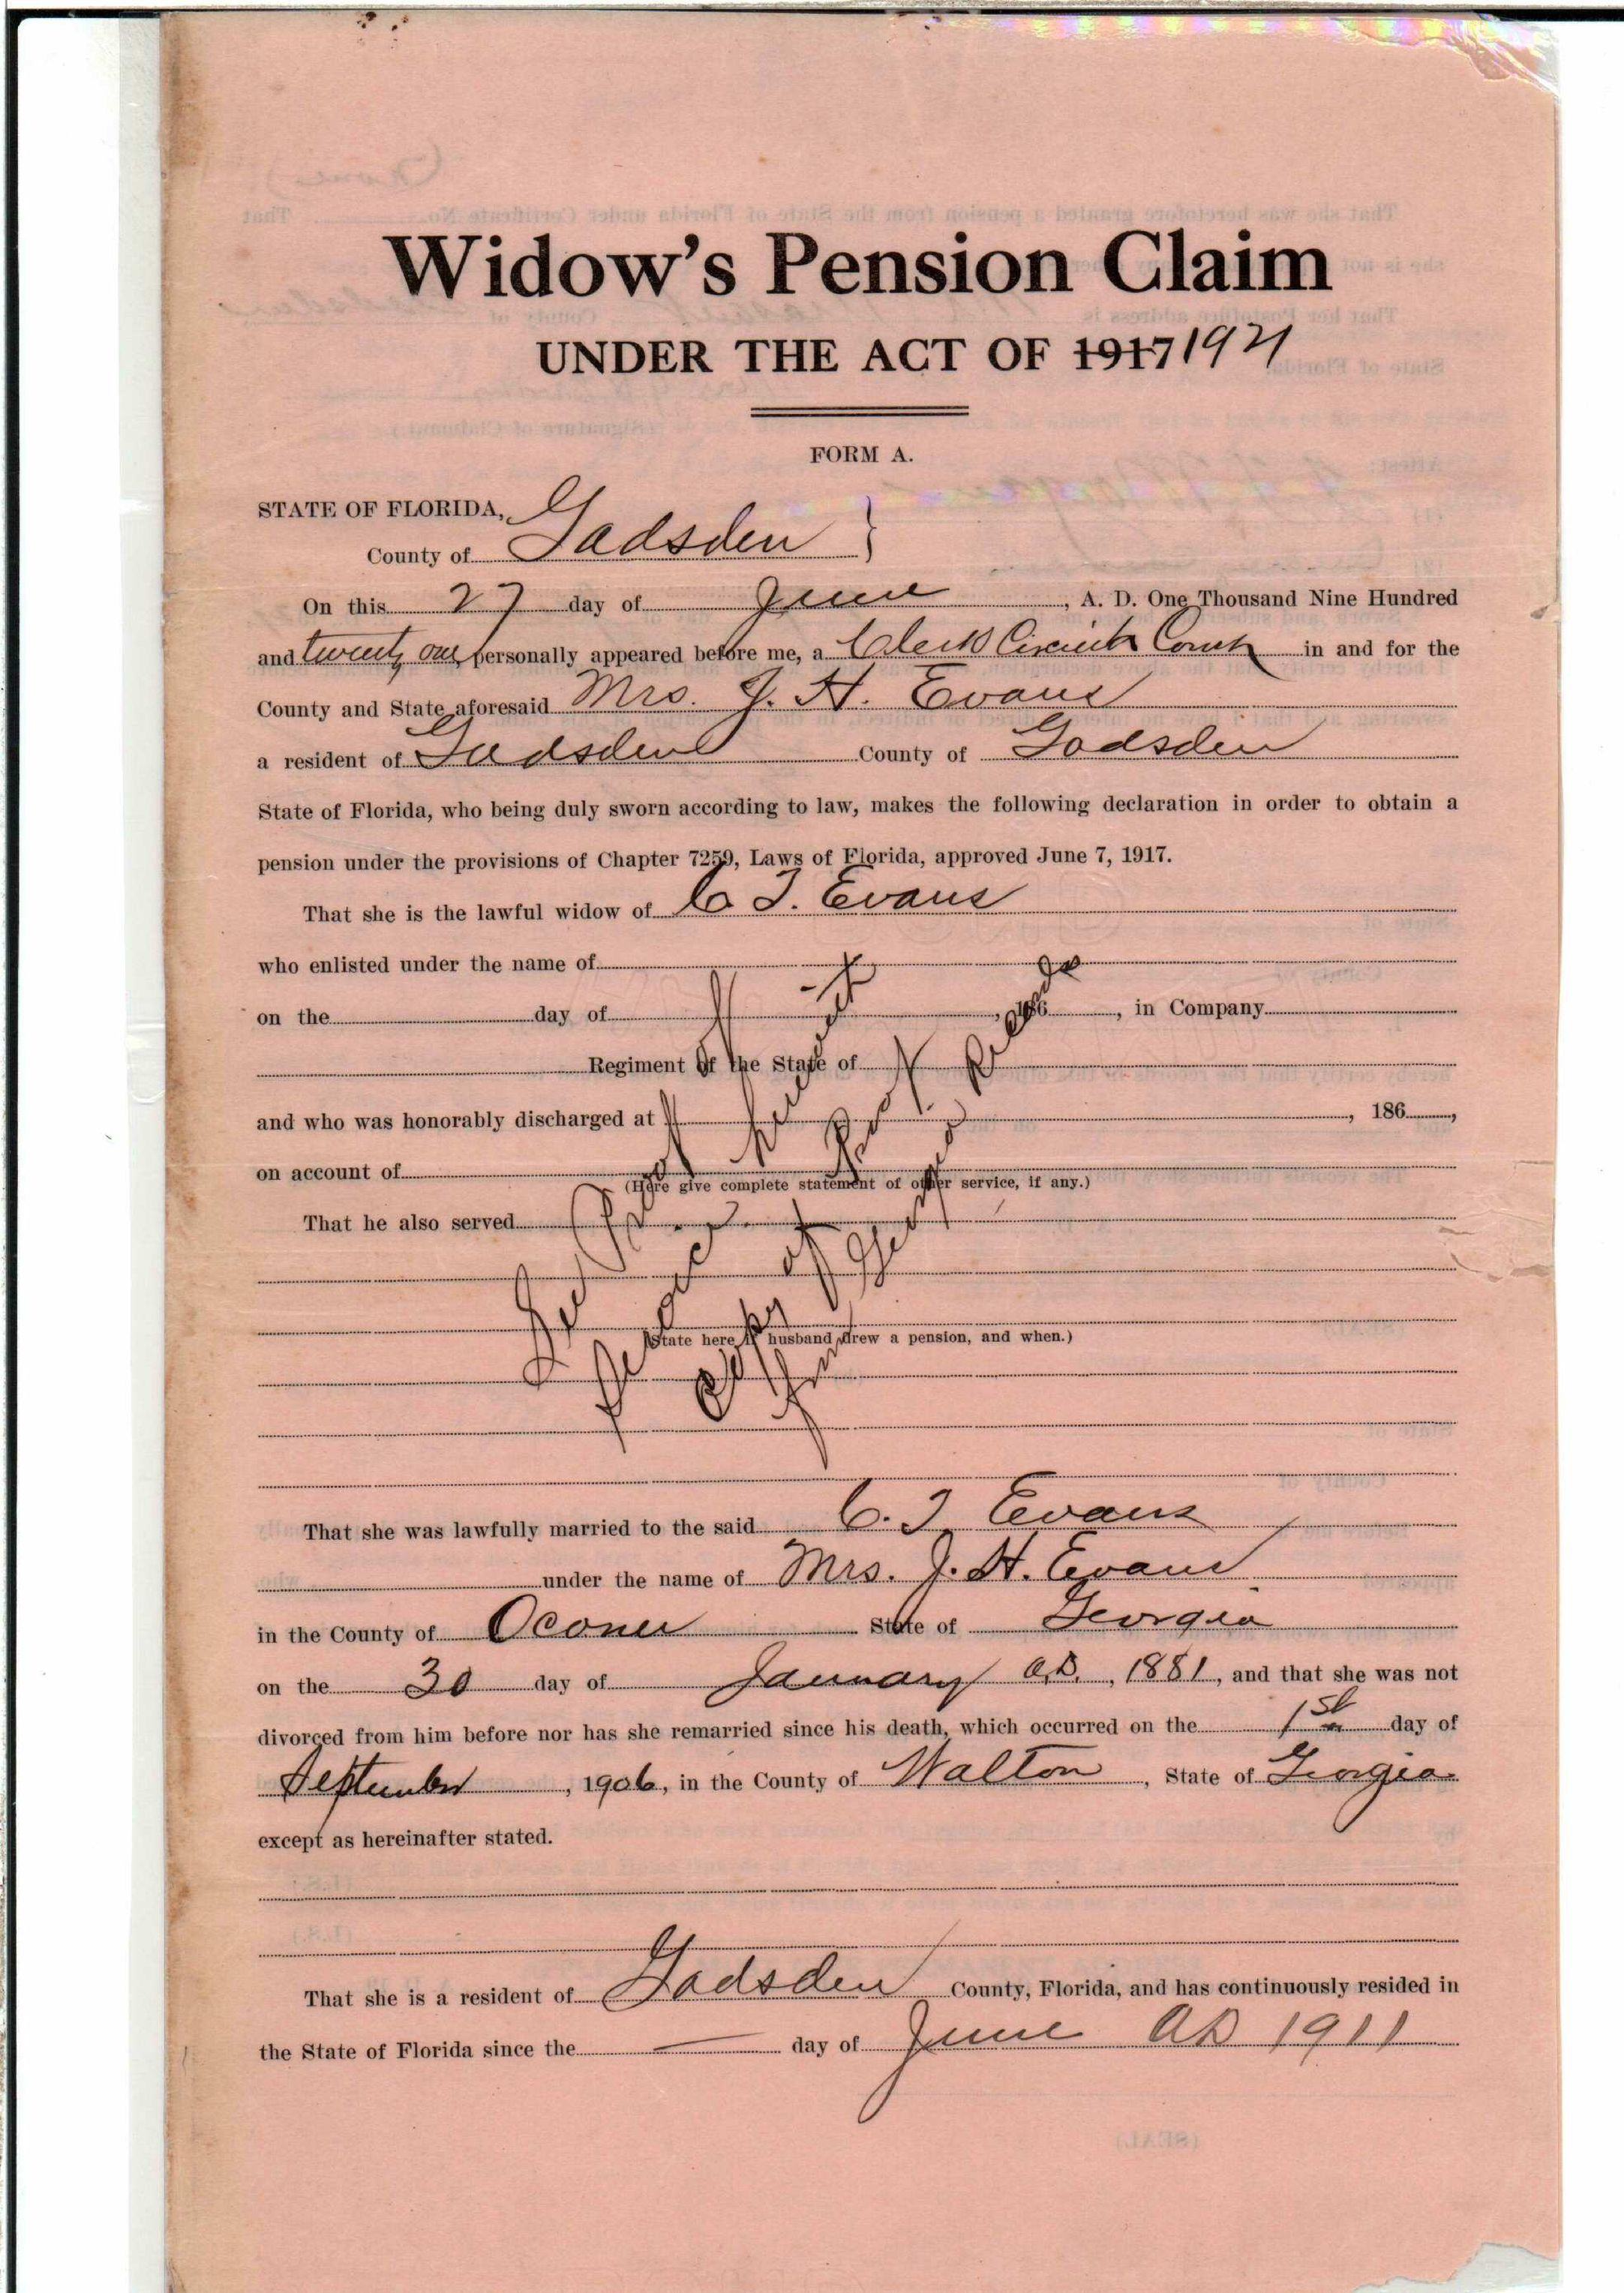 Widow's Pension Claim
UNDER THE ACT OF 1917 1921
FORM A.
STATE OF FLORIDA,
County of Gadsden }
On this 27 day of June, A. D. One Thousand Nine Hundred
and twenty one, personally appeared before me, a Clerk Circuit Court in and for the
County and State aforesaid Mrs. J. H. Evans
a resident of Gadsden County of Gadsden
State of Florida, who being duly sworn according to law, makes the following declaration in order to obtain a
pension under the provisions of Chapter 7259, Laws of Florida, approved June 7, 1917.
That she is the lawful widow of C. T. Evans
who enlisted under the name of
on the day of , 186 , in Company
Regiment of the State of
and who was honorably discharged at , 186 ,
on account of
(Here give complete statement of other service, if any.)
That he also served
See Proof
copy of
from Georgia
(State here if husband drew a pension, and when.)
That she was lawfully married to the said C. T Evans
under the name of Mrs. J. H. Evans
in the County of Oconee State of Georgia
on the 30 day of January A.D., 1881, and that she was not
divorced from him before nor has she remarried since his death, which occurred on the 1st day of
September, 1906, in the County of Walton, State of Georgia
except as hereinafter stated.
That she is a resident of Gadsden County, Florida, and has continuously resided in
the State of Florida since the — day of June AD 1911
(SEAL)